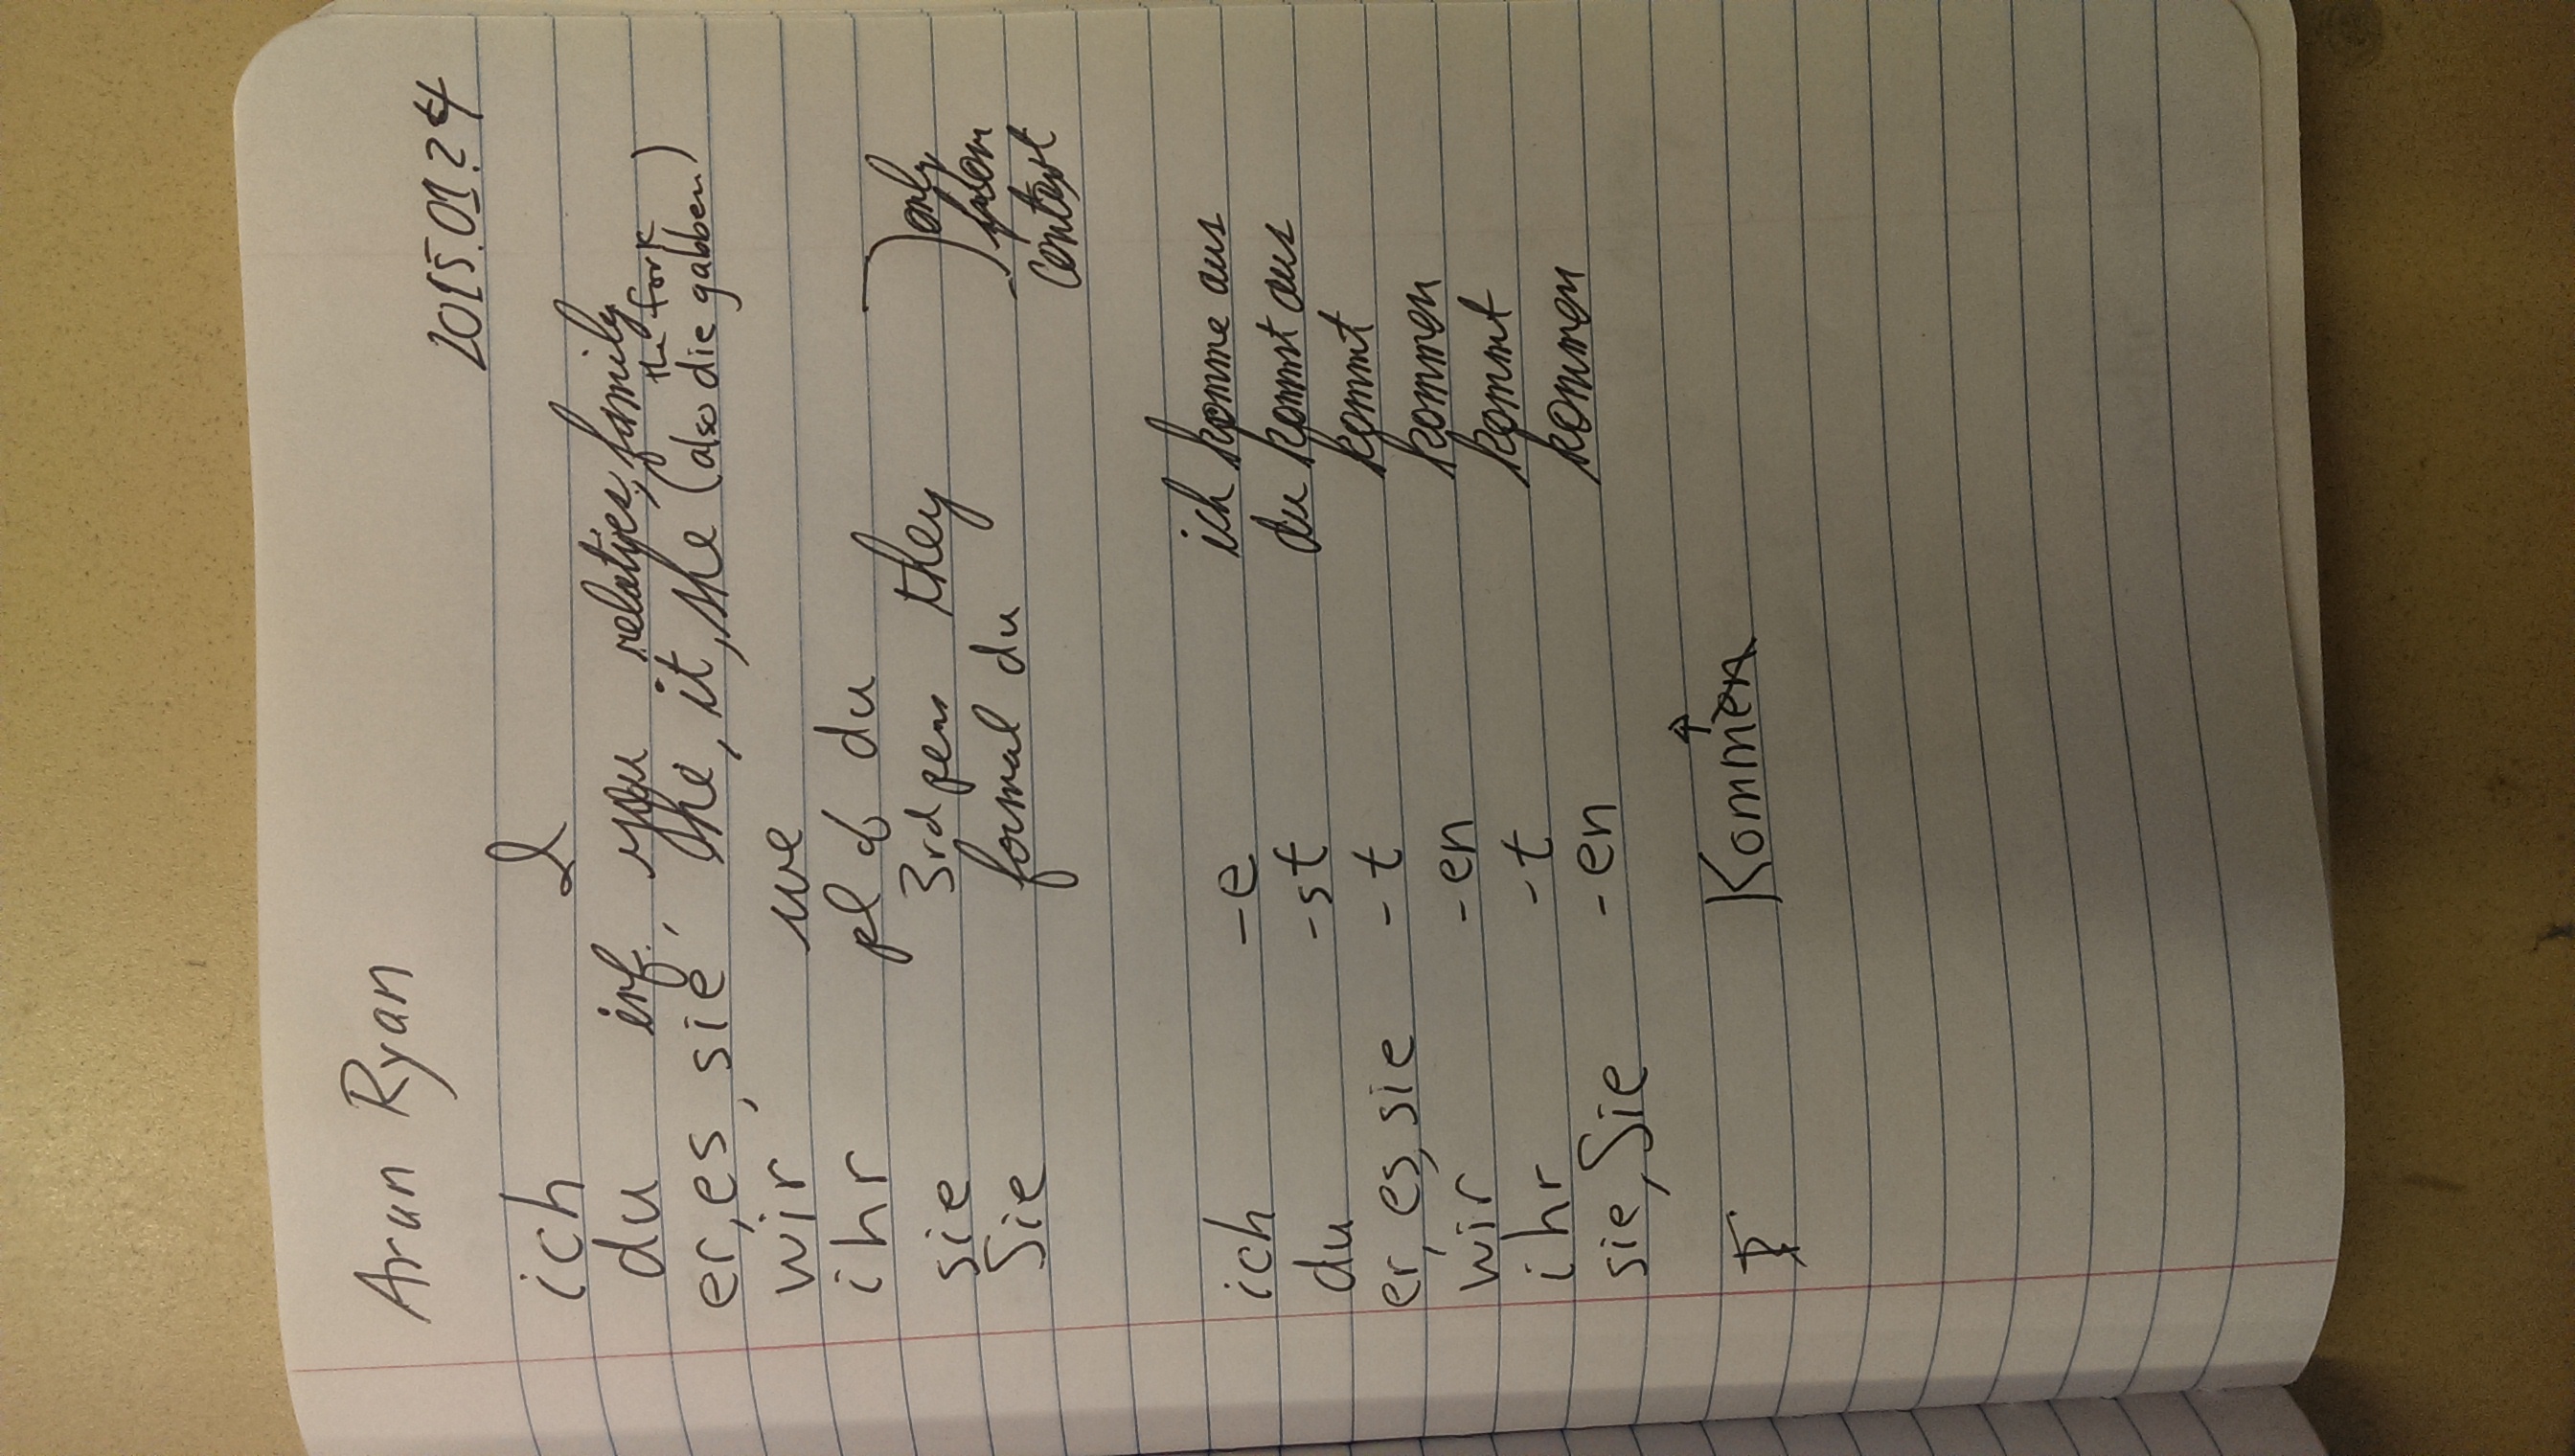 Arun Ryan
2015.01.24
ich I
du inf. you relatives, family
er, es, sie he, it, she (also die gabben)
the fork
wir we
ihr pl of du
sie 3rd pers they
Sie formal du
only
from
context
ich -e ich komme aus
du -st du kommst aus
er, es, sie -t kommt
wir -en kommen
ihr -t kommt
sie, Sie -en kommen
Kommen